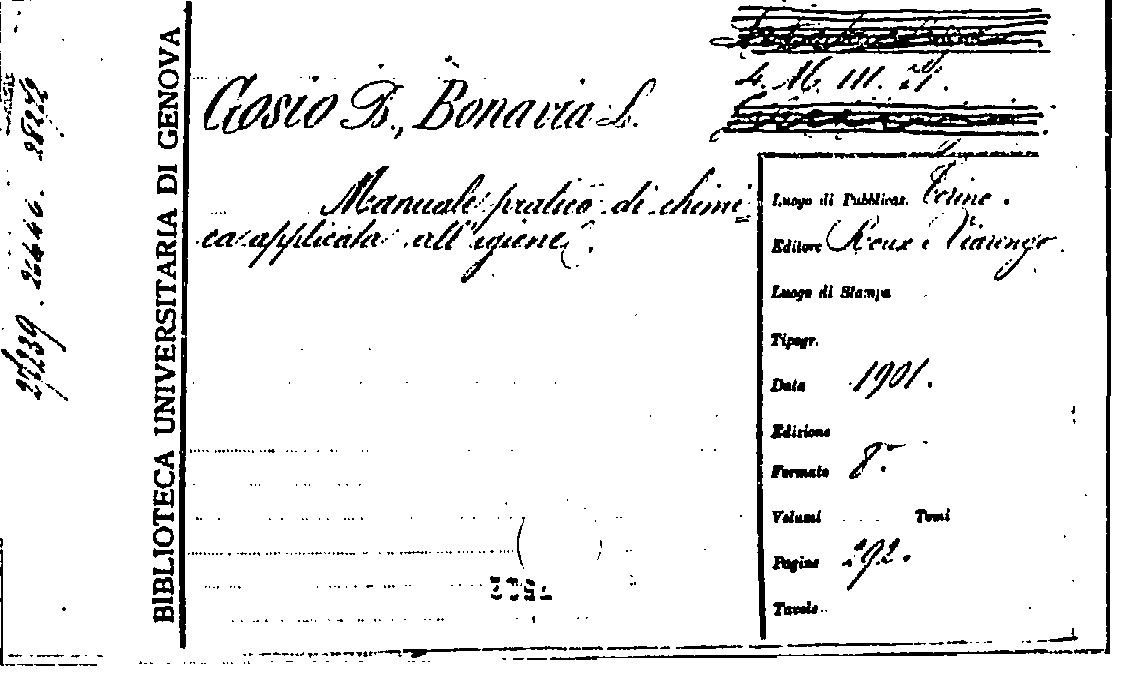 BIBLIOTECA UNIVERSITARIA DI GENOVA
4. M. III. 21.
Gosio B., Bonavia L.
Manuale pratico di chimi
ca applicata all'igiene.
Luogo di Pubblicaz. Torino.
Editore Roux e Viarengo.
Luogo di Stampa
Tipogr.
Data 1901.
Edizione
Formato 8°
Volumi Tomi
Pagine 292.
Tavole